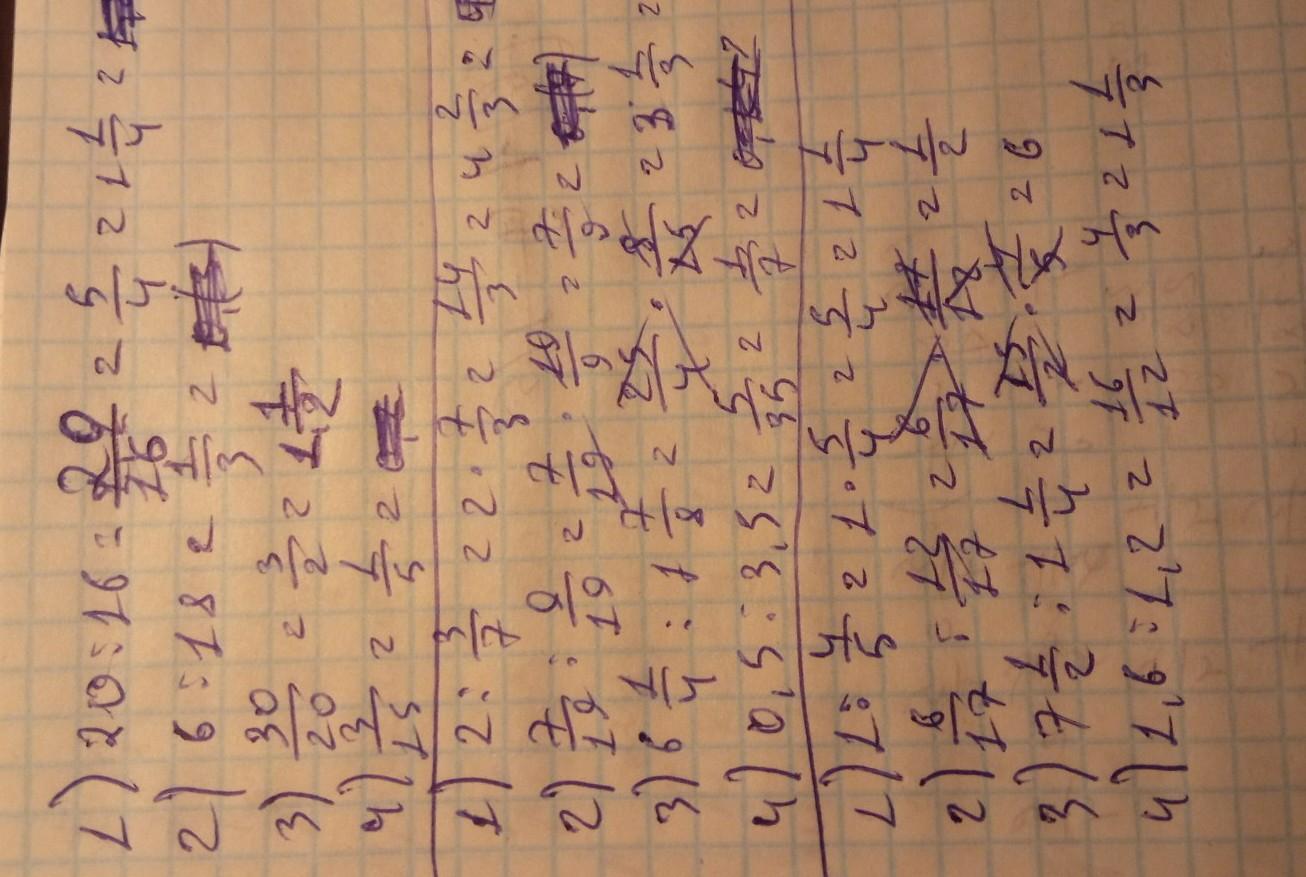 1) 20 : 16 = 20/16 = 5/4 = 1 1/4 =
2) 6 : 18 = 1/3 =
3) 30/20 = 3/2 = 1 1/2
4) 3/15 = 1/5 =
1) 2 : 3/7 = 2 · 7/3 = 14/3 = 4 2/3 =
2) 7/19 : 9/19 = 7/19 · 19/9 = 7/9 =
3) 6 1/4 : 1 7/8 = 25/4 · 8/15 = 3 1/3 =
4) 0,5 : 3,5 = 5/35 = 1/7 =
1) 1 : 4/5 = 1 · 5/4 = 5/4 = 1 1/4
2) 6/17 : 12/17 = 6/17 · 17/12 = 1/2
3) 7 1/2 : 1 1/4 = 15/2 · 4/5 = 6
4) 1,6 : 1,2 = 16/12 = 4/3 = 1 1/3